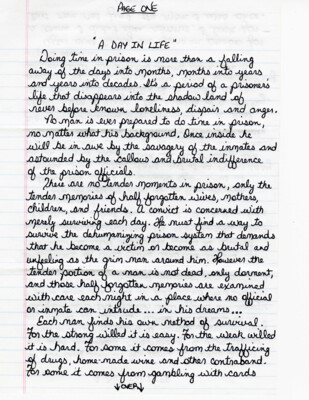 PAGE ONE
"A DAY IN LIFE"
Doing time in prison is more than a falling
away of the days into months, months into years
and years into decades. It's a period of a prisoner's
life that disappears into the shadow land of
never before known loneliness, dispair and anger.
No man is ever prepared to do time in prison,
no matter what his background. Once inside he
will be in awe by the savagery of the inmates and
astounded by the callous and brutal indifference
of the prison officials.
There are no tender moments in prison, only the
tender memories of half forgotten wives, mothers,
children, and friends. A convict is concerned with
merely surviving each day. He must find a way to
survive the dehumanizing prison system that demands
that he become a victim or become as brutal and
unfeeling as the grim man around him. However the
tender portion of a man is not dead, only dorment,
and those half forgotten memories are examined
with care each night in a place where no official
or inmate can intrude... in his dreams...
Each man finds his own method of survival.
For the strong willed it is easy. For the weak willed
it is hard. For some it comes from the trafficing
of drugs, home-made wine and other contraband.
For some it comes from gambling with cards
OVER